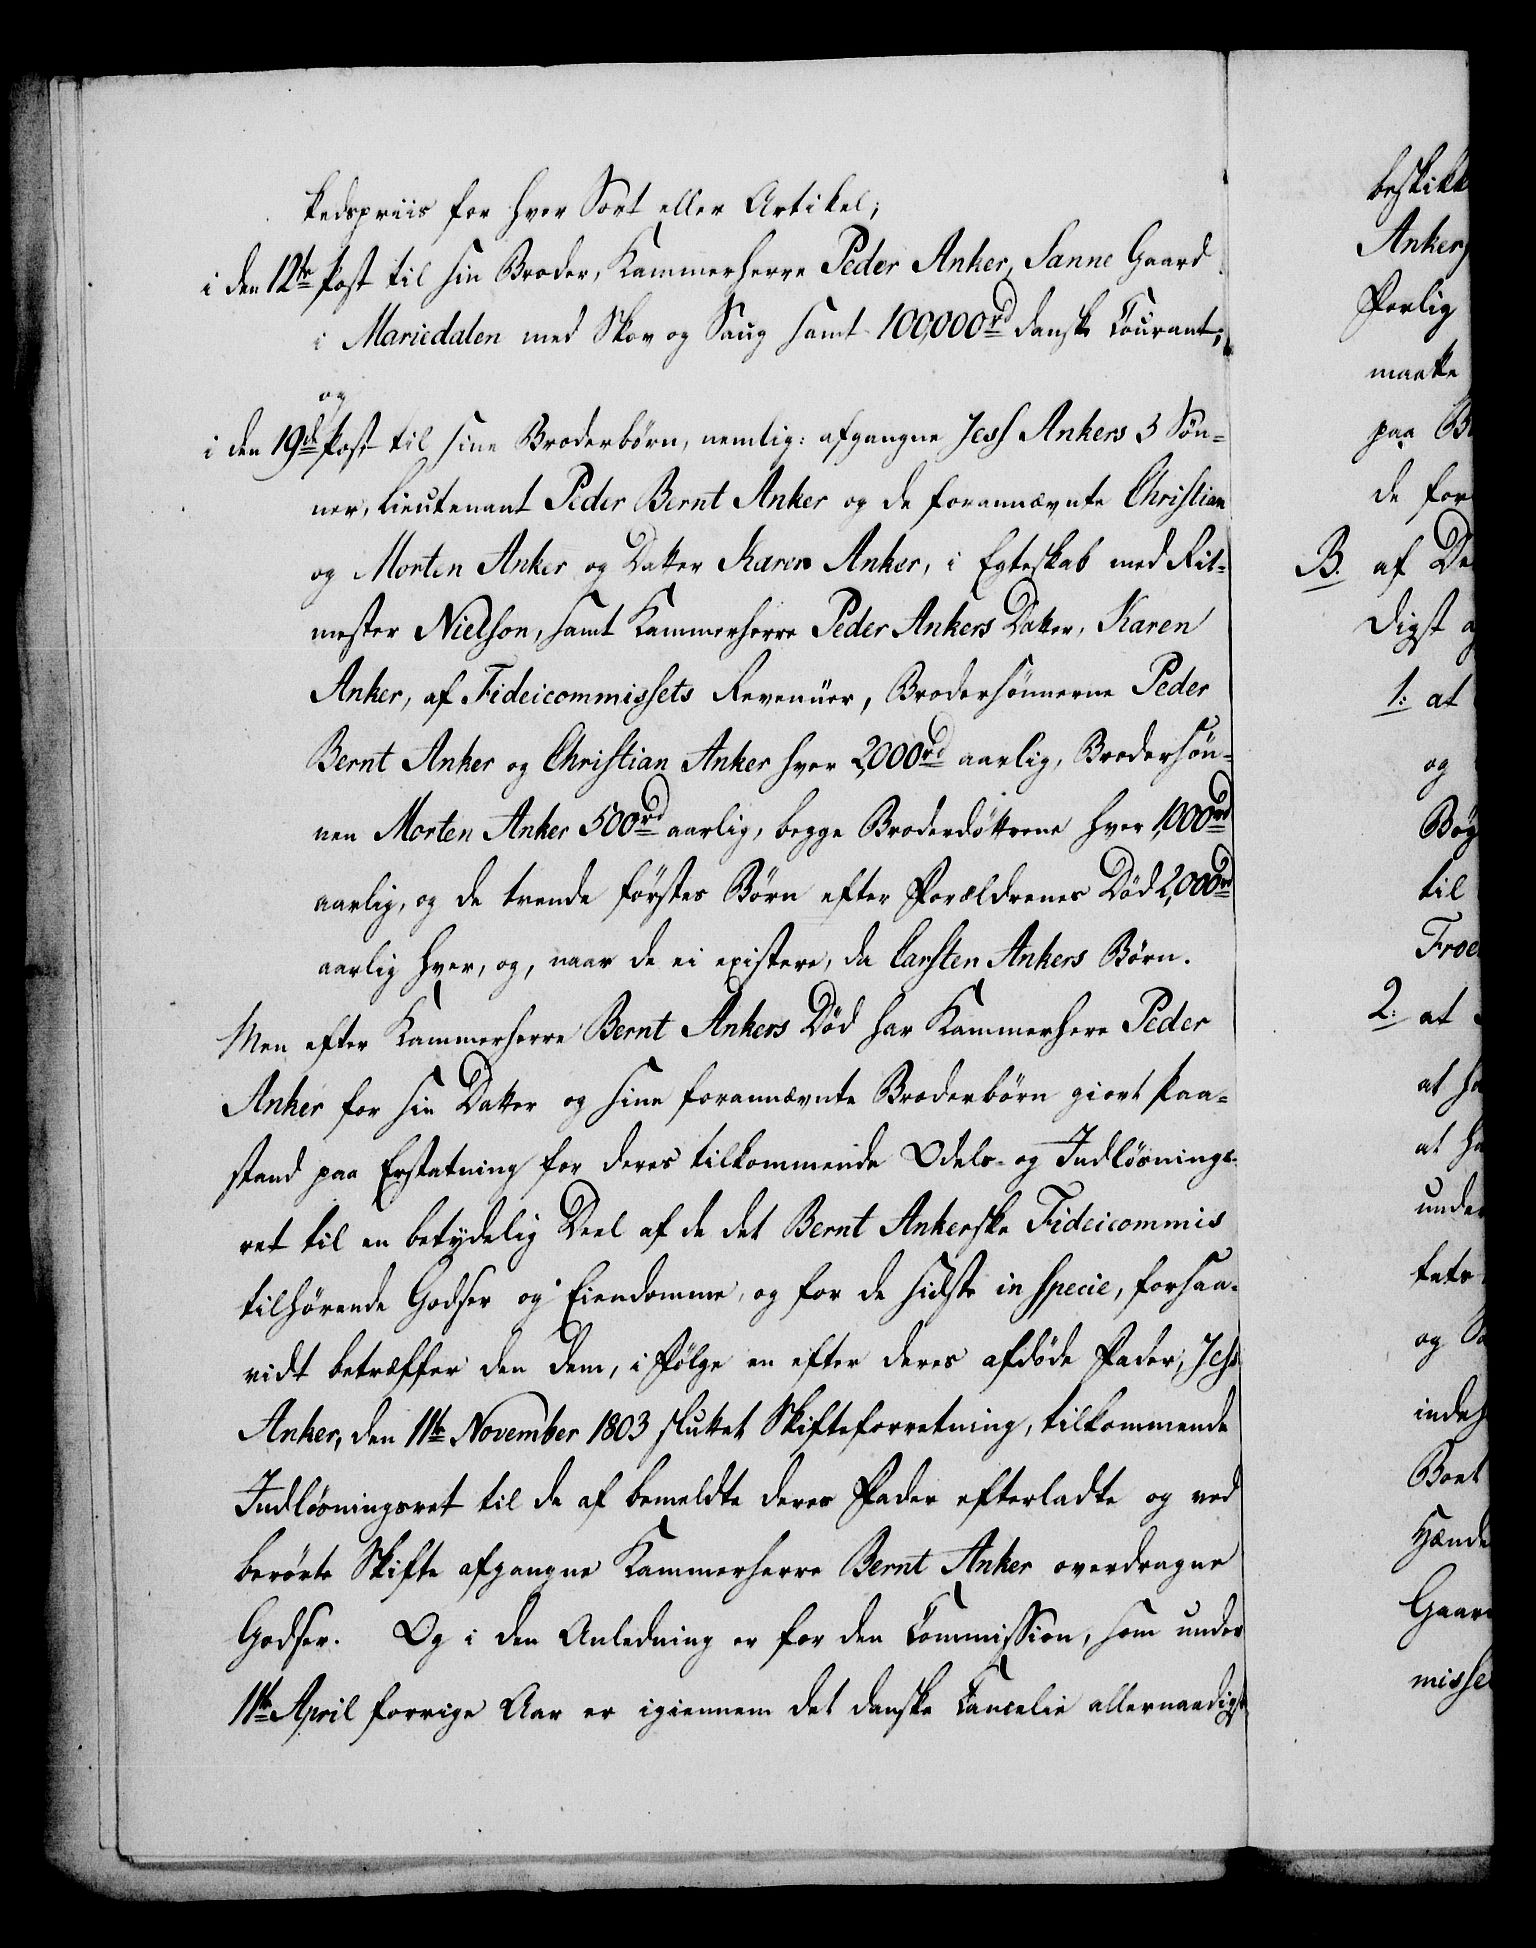 kedspriis for hver Sort eller Artikel;
i den 12te Post til sin Broder, Kammerherre Peder Anker, Sanne Gaard
i Mariedalen med Skov og Saug samt 100,000rd danske Courant;
og
i den 19de Post til sine Broderbørn, nemlig: afgangne Jess Ankers 3 Søn-
ner, Lieutenant Peder Bernt Anker og de forannævnte Christian
og Morten Anker og Datter Karen Anker, i Egteskab med Rit-
mester Nielson, samt Kammerherre Peder Ankers Datter, Karen
Anker, af Fideicommissets Revenüer, Brodersønnerne Peder
Bernt Anker og Christian Anker hver 2,000rd aarlig, Brodersøn-
nen Morten Anker 500rd aarlig, begge Broderdøttrene hver 1,000rd
aarlig, og de trende førstes Børn efter Forældrenes Død 2,000rd
aarlig hver, og, naar de ei existere, da Carsten Ankers Børn.
Men efter Kammerherre Bernt Ankers Død har Kammerherre Peder
Anker for sin Datter og sine forannævnte Broderbørn giort Paa-
stand paa Erstatning for deres tilkommende Odels- og Indløsnings-
ret til en betydelig Deel af de det Bernt Ankerske Fideicommis
tilhørende Godser og Eiendomme, og for de sidste in specie, forsaa-
vidt betræffer den dem, i Følge en efter deres afdøde Fader, Jess
Anker, den 11te November 1803 sluttet Skifteforretning, tilkommende
Indløsningsret til de af bemeldte deres Fader efterladte og ved
berørte Skifte afgangne Kammerherre Bernt Anker overdragne
Godser. Og i den Anledning er for den Commission, som under
11te April forrige Aar er igiennem det danske Cancelie allernaadigst
beskikk
Anker
Forlig
maatte
paa B
de for
B. af De
digst a
1. at
og
Bøg
til
Froe
2. at
at ha
at ha
under
tets
og Sa
indeh
Boet
Hænde
Gaar
misse